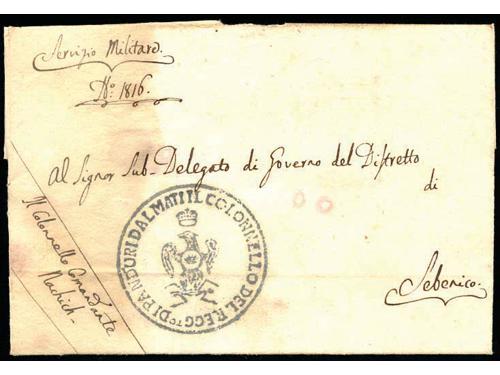 Servizio Militare
No: 1816.
Al Signor Sub-Delegato di Governo del Distretto
di
Sebenico.
Il Colonnello Comandante
Nachich
IL COLONNELLO DEL REGG.TO DI PANDURI DALMATI